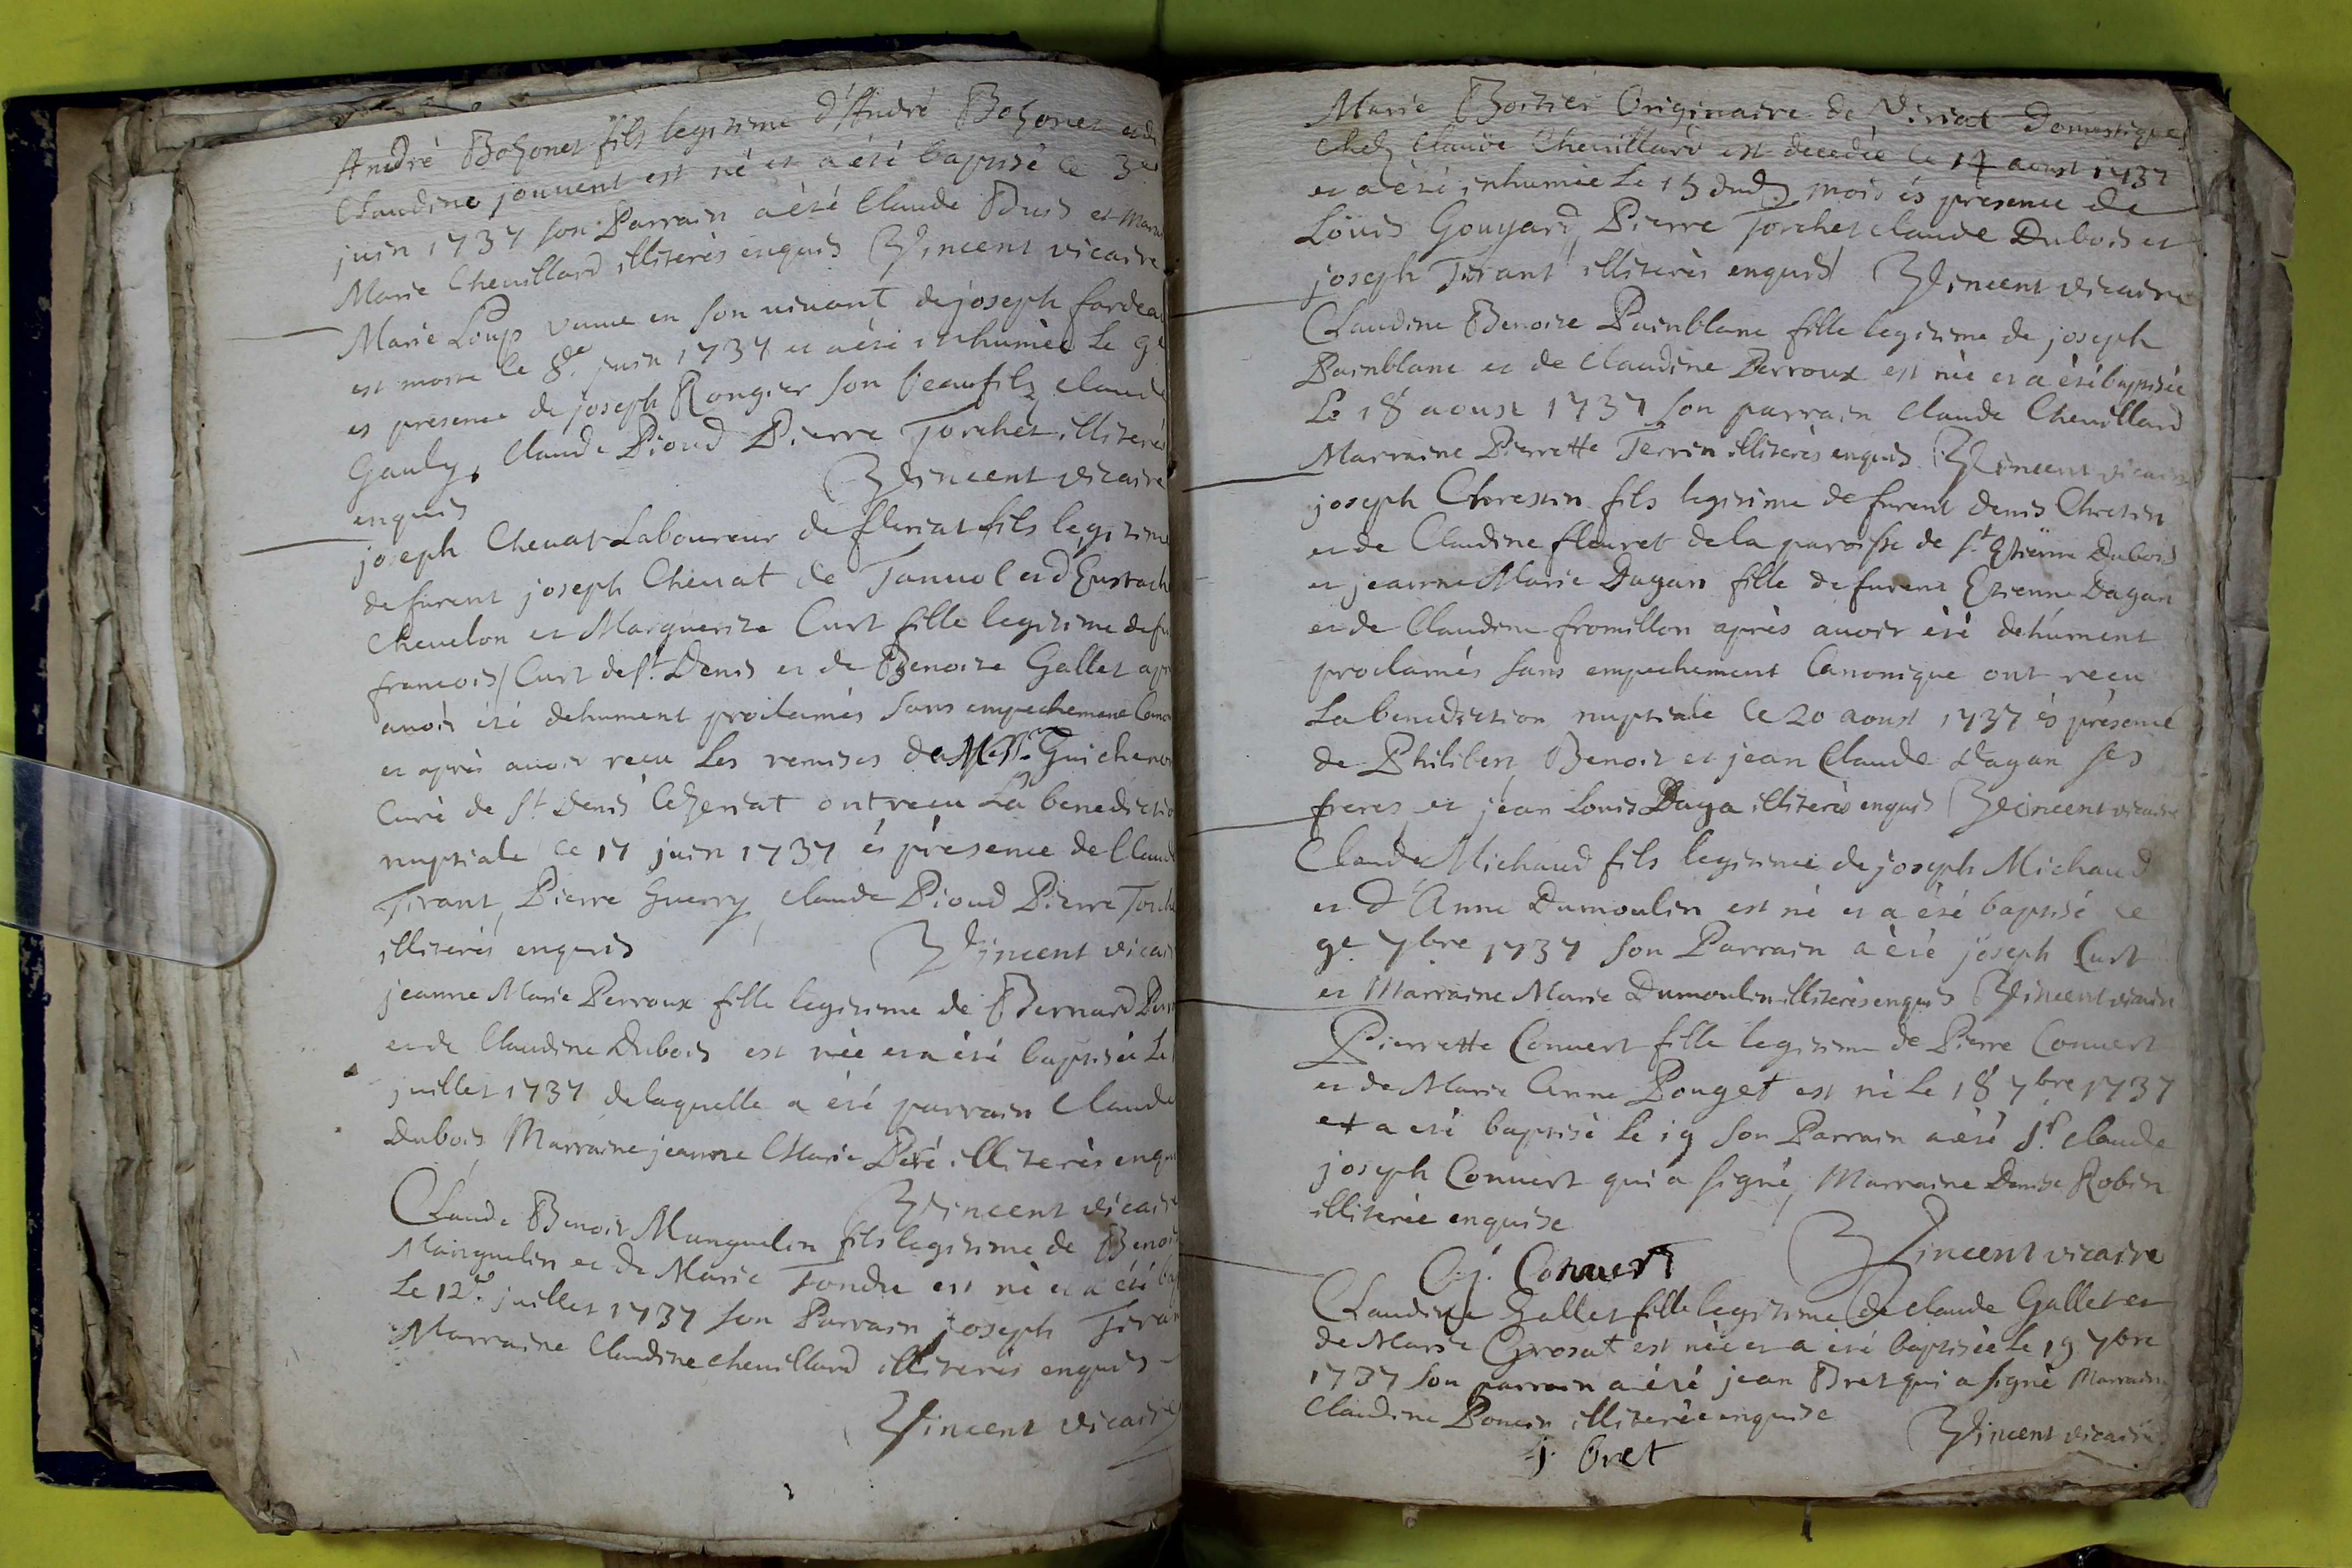 André Bozonet fils legitime d'André Bozonet et de
Claudine jouvent est né et a été baptisé le 3e
juin 1737 son Parrain a été Claude Buis et Marrai
Marie Chevillard illiterés enquis Vincent vicaire
Marie Loup veuve en son vivant de joseph fardeal
est morte le 8e. juin 1737 et a été inhumée le 9e
es presence de joseph Rongier son beaufils, claude
Gauly, Claude Pioud Pierre Torchet illiterés
enquis Vincent vicaire
joseph Chevat Laboureur de fleriat fils legitime
de furent joseph Chevat de Tanvol et d'Eustach
Chevelon et Marguerite Curt fille legitime de fu
francois Curt de St. Denis et de Benoite Gallet apr
avoir été dehument proclamés sans empechement Cano
et après avoir recu Les remises de Messr. Guichenon
Curé de St. Denis Ceyseriat ont recu La benedictio
nuptiale le 17 juin 1737 és présence de Claud
Tirant, Pierre Guerry, claude Pioud Pierre Torche
illiterés enquis Vincent vicai
jeanne Marie Perroux fille legitime de Bernard Perr
et de Claudine Dubois est née et a été baptisée Le
juillet 1737 de laquelle a été parrain Claude
Dubois, Marraine jeanne Marie Peré illiterés enqui
Vincent vicaire
Claude Benoit Manguelin fils legitime de Benoi
Manguelin et de Marie Tondu est né et a été bap
Le 12e. juillet 1737 son Parrain joseph Tiran
Marraine Claudine chevillard illiterés enquis
Vincent vicaire
Marie Boitier Originaire de Viriat Domestique
chez Claude Chevillard est decedée le 14 aoust 1737
et a été inhumée le 15 dud. mois és presence de
Loüis Gouyard, Pierre Torchet claude Dubois et
joseph Tirant illiterés enquis Vincent vicaire
Claudine Benoite Painblanc fille legitime de joseph
Painblanc et de Claudine Perroux est née et a été baptisée
Le 18 aoust 1737 son parrain Claude Chevillard
Marraine Pierrette Terrin illiterés enquis Vincent vicaire
joseph Chrestin fils legitime de furent denis Chretin
et de Claudine fleuret de la paroisse de St. Etienne Dubois
et jeanne Marie Dagan fille de furent Etienne Dagan
et de Claudine fromillon après avoir été dehument
proclamés sans empechement Canonique ont recu
La benediction nuptiale le 20 aoust 1737 és présence
de Philibert, Benoit et jean Claude Dagan ses
freres et jean Louis Daga illiterés enquis Vincent vicaire
Claude Michaud fils legitime de joseph Michaud
et d'Anne Dumoulin est né et a été baptisé le
9e. 7bre 1737 son Parrain a été joseph Curt
et Marraine Marie Dumoulin illiterés enquis Vincent vicaire
Pierrette Convert fille legitime de Pierre Convert
et de Marie Anne Pouget est né le 18 7bre 1737
et a été baptisé le 19 son Parrain a été Sr. Claude
joseph Convert qui a signé, Marraine Denise Robin
illiterée enquise
Vincent vicaire
C. j. Convert
Claudine Gallet fille legitime de claude Gallet et
de Marie Grosat est née et a été baptisée le 19 7bre
1737 son parrain a été jean Bret qui a signé Marraine
Claudine Poncin illiterée enquise Vincent vicaire
j. bret